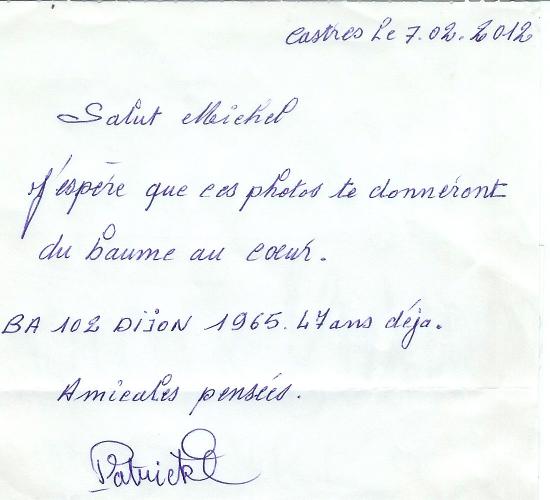 Castres le 7.02.2012
Salut Michel
J'espère que ces photos te donneront
du baume au coeur.
BA 102 DIJON 1965. 47 ans déja.
Amicales pensées.
Patrick